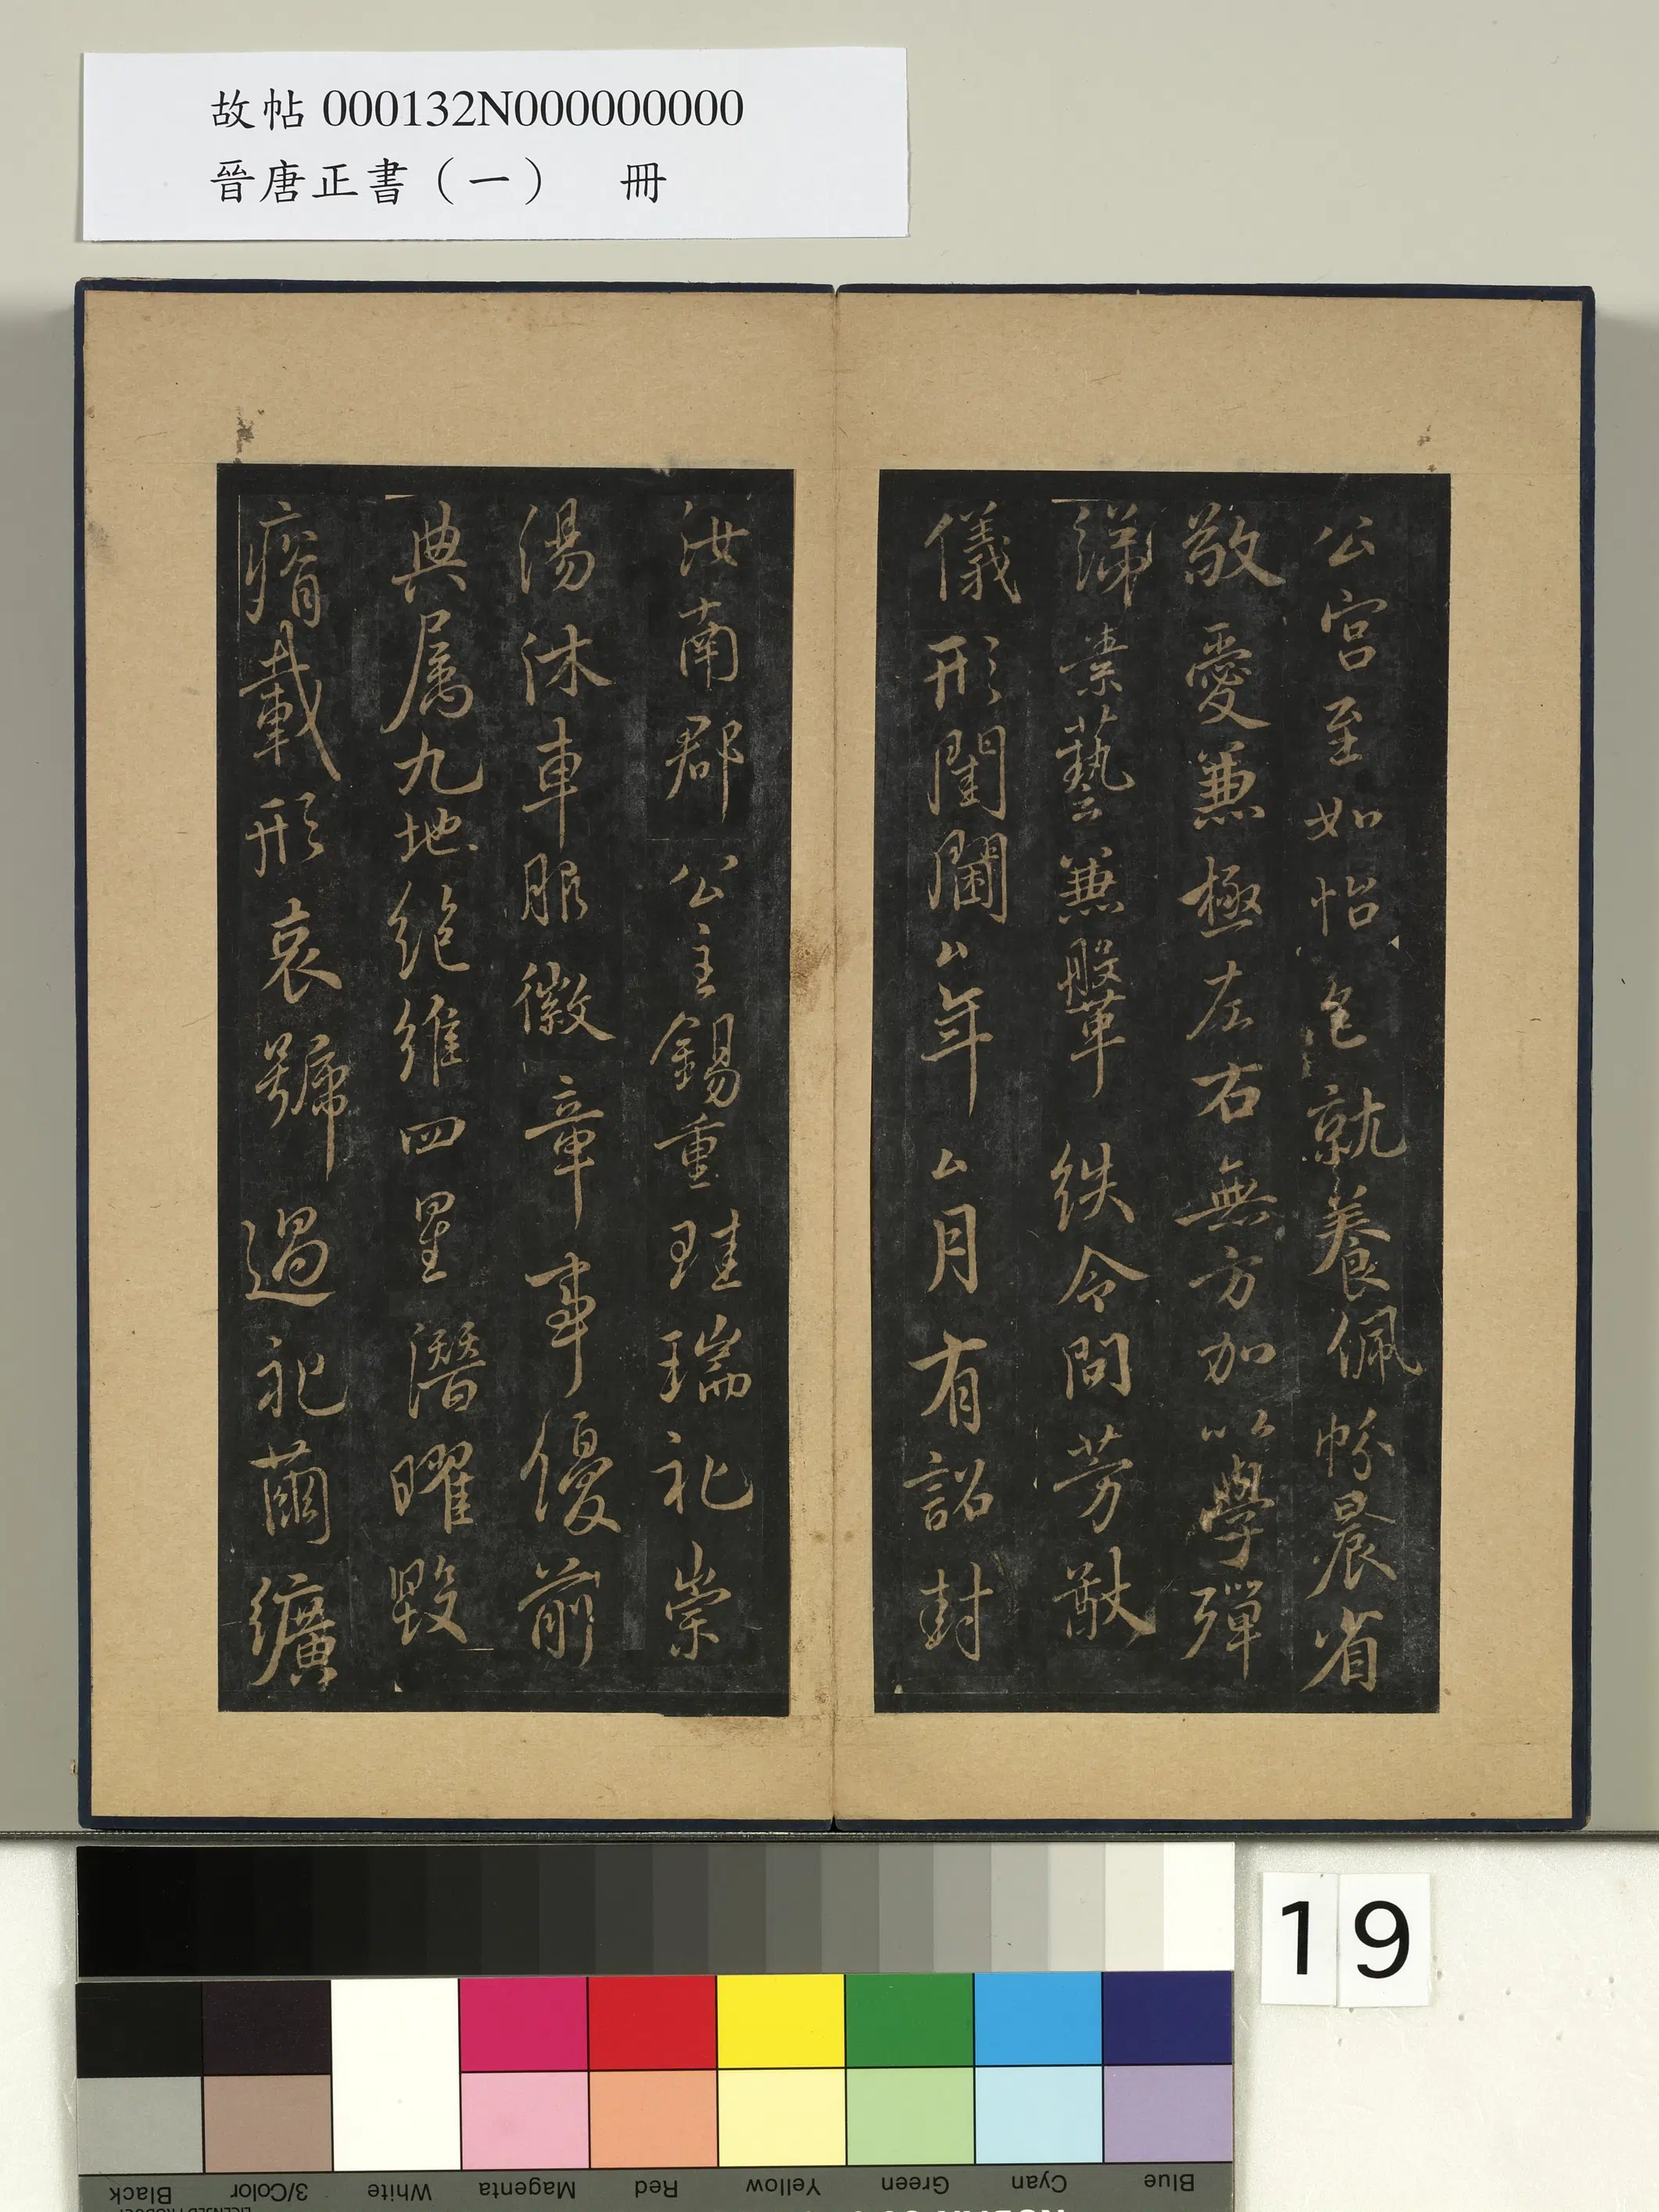 故帖 000132N000000000
晉唐正書（一） 冊
公宮至如怡色就養佩帉晨省
敬愛兼極左右無方加以學殫
綈素藝兼鞶紩令問芳猷
儀形閨閫厶年厶月有詔封
汝南郡公主錫重珪瑞礼崇
湯沐車服徽章事優前
典属九地絕維四星潛曜毀
瘠載形哀號過礼繭纊
19
Black 3/Color White Magenta Red Yellow Green Cyan Blue